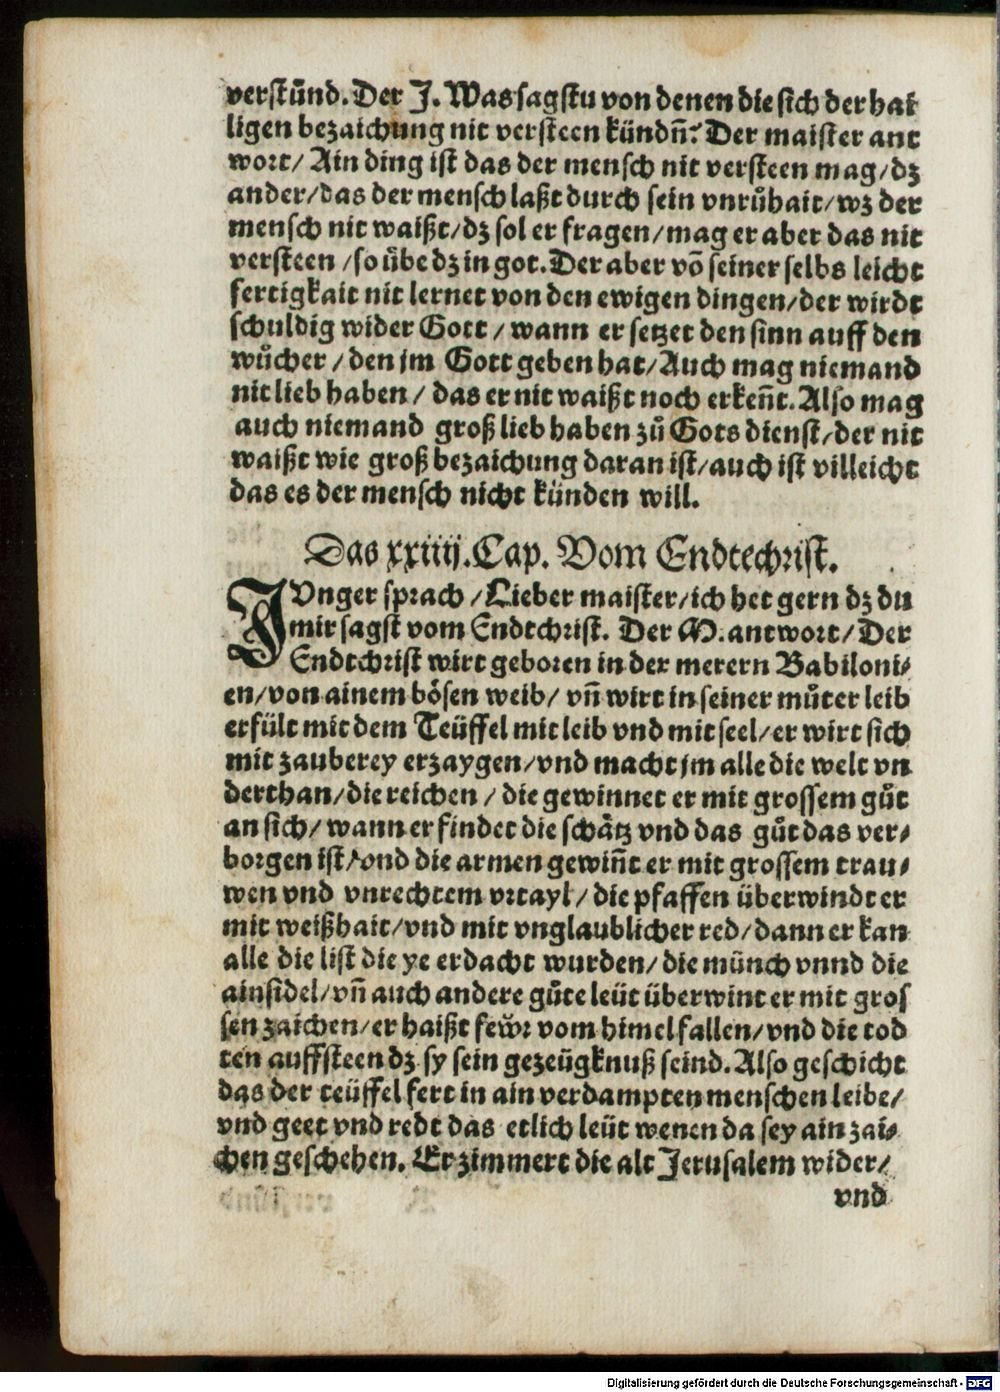 verſtünd. Der J. Was ſagſtu von denen die ſich der hai
ligen bezaichung nit verſteen kündn̄? Der maiſter ant
wort/ Ain ding iſt das der menſch nit verſteen mag/ dz
ander/ das der menſch laßt durch ſein vnrůhait/ wz der
menſch nit waißt/ dz ſol er fragen/ mag er aber das nit
verſteen /ſo übe dz in got. Der aber võ ſeiner ſelbs leicht
fertigkait nit lernet von den ewigen dingen/ der wirdt
ſchuldig wider Gott / wann er ſetzet den ſinn auff den
wůcher / den jm Gott geben hat/ Auch mag niemand
nit lieb haben / das er nit waißt noch erkeñt. Alſo mag
auch niemand groß lieb haben zů Gots dienſt/ der nit
waißt wie groß bezaichung daran iſt/ auch iſt villeicht
das es der menſch nicht künden will.
Das xxiiij. Cap. Vom Endtechriſt.
JVnger ſprach /Lieber maiſter/ ich het gern dz du
mir ſagſt vom Endtchriſt. Der M. antwort/ Der
Endtchriſt wirt geboren in der merern Babiloni⸗
en/ von ainem böſen weib/ vñ wirt in ſeiner můter leib
erfült mit dem Teüffel mit leib vnd mit ſeel/ er wirt ſich
mit zauberey erzaygen/ vnd macht jm alle die welt vn
derthan/ die reichen / die gewinnet er mit groſſem gůt
an ſich/ wann er findet die ſchätz vnd das gůt das ver⸗
borgen iſt/ vnd die armen gewiñt er mit groſſem trau⸗
wen vnd vnrechtem vrtayl/ die pfaffen überwindt er
mit weißhait/ vnd mit vnglaublicher red/ dann er kan
alle die liſt die ye erdacht wurden/ die münch vnnd die
ainſidel/ vñ auch andere gůte leüt überwint er mit groſ
ſen zaichen/ er haißt fewͤr vom himel fallen/ vnd die tod
ten auffſteen dz ſy ſein gezeügknuß ſeind. Alſo geſchicht
das der teüffel fert in ain verdampten menſchen leibe/
vnd geet vnd redt das etlich leüt wenen da ſey ain zai⸗
chen geſchehen. Er zimmert die alt Jeruſalem wider/
vnd
Digitalisierung gefördert durch die Deutsche Forschungsgemeinschaft - DFG